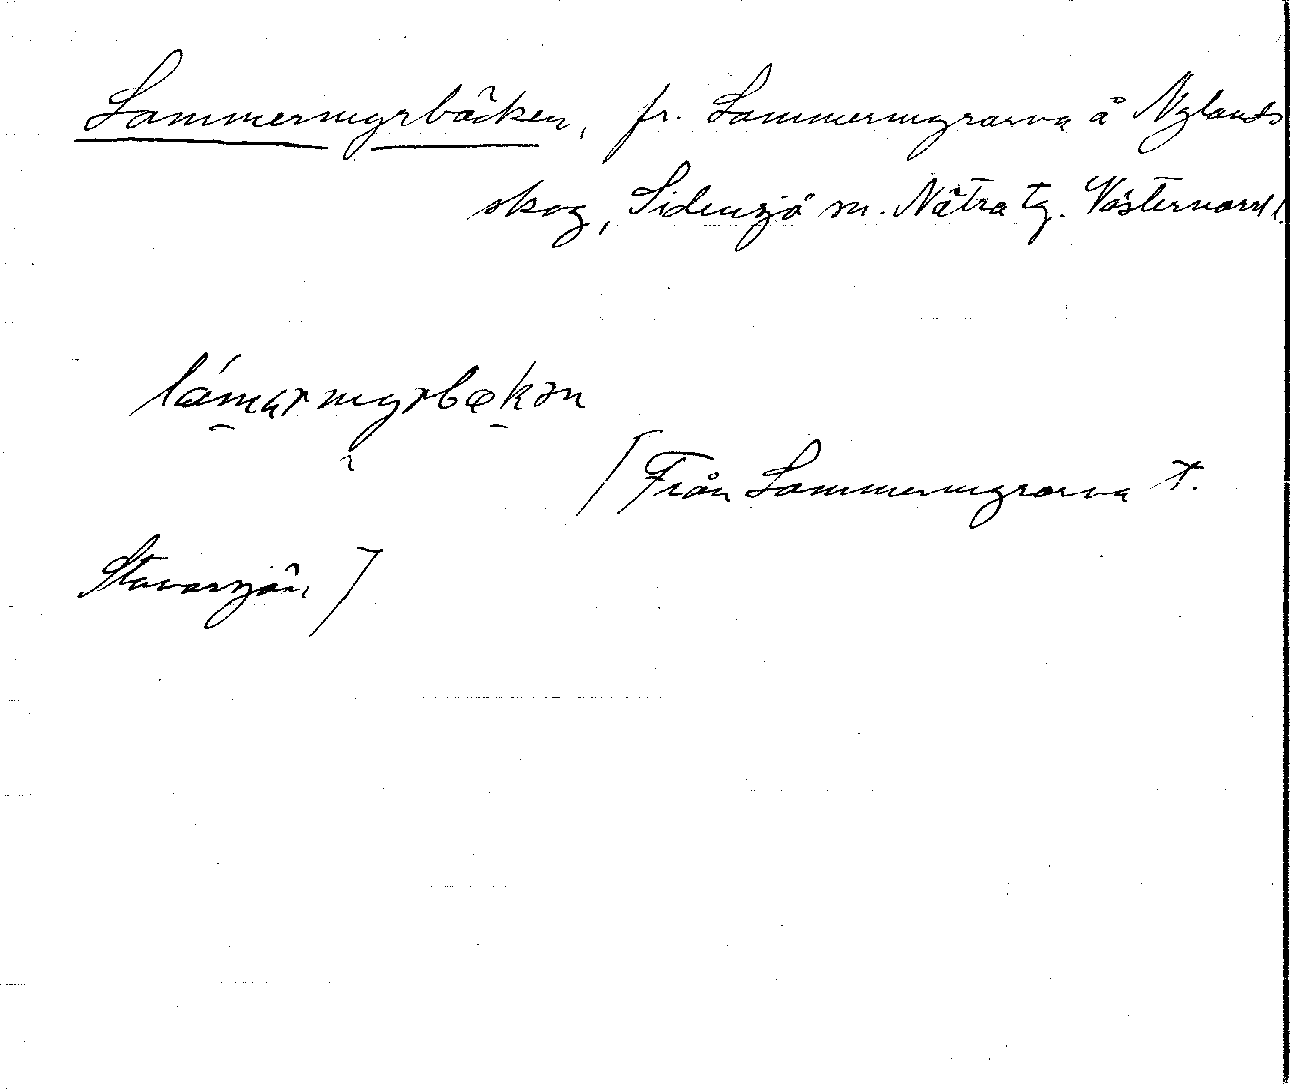 Lammermyrbäcken, fr. Lammermyrarna å Nylands
skog, Sidensjö sn. Nätra tg. Västernorrl.
lámarmyrbækən
[Från Lammermyrarna t.
Stavarsjön]